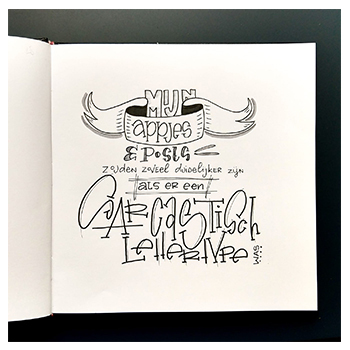 MIJN
appjes
& Posts
zouden zoveel duidelijker zijn
als er een
SARCASTISCH
LETTERTYPE
WAS!